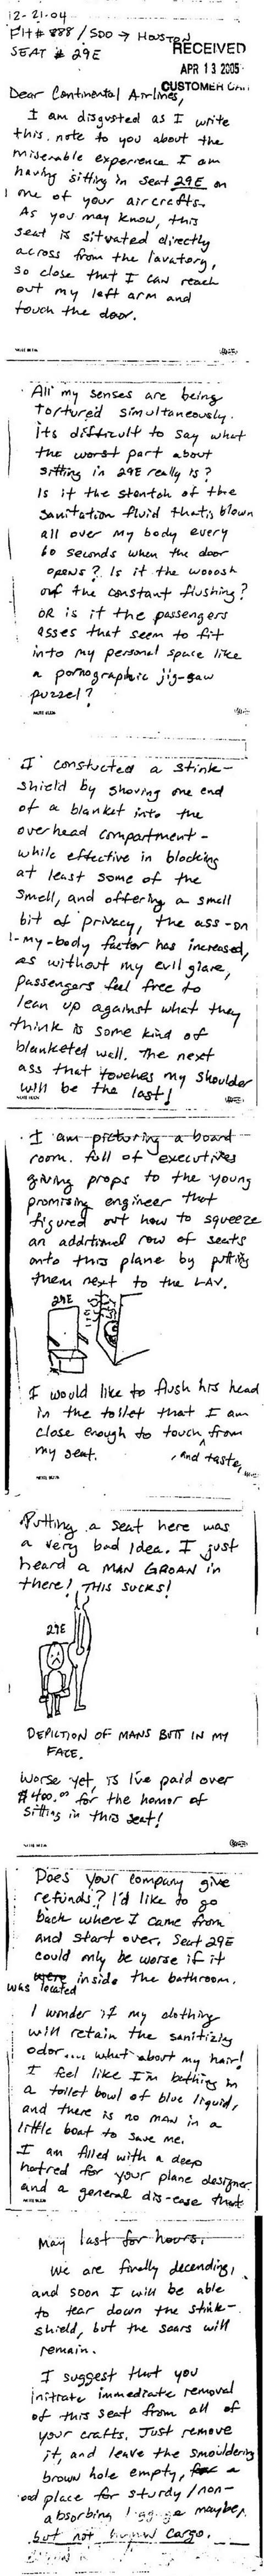 12-21-04
Flt# 888 / SDO → HOUSTON
SEAT # 29E
RECEIVED
APR 13 2005
CUSTOMER CARE
Dear Continental Airlines,
I am disgusted as I write
this note to you about the
miserable experience I am
having sitting in seat 29E on
one of your aircrafts.
As you may know, this
seat is situated directly
across from the lavatory,
so close that I can reach
out my left arm and
touch the door.
All my senses are being
tortured simultaneously.
Its difficult to say what
the worst part about
sitting in 29E really is?
Is it the stench of the
sanitation fluid that's blown
all over my body every
60 seconds when the door
opens? Is it the wooosh
of the constant flushing?
OR is it the passengers
asses that seem to fit
into my personal space like
a pornographic jig-saw
puzzel?
I constucted a stink-
shield by shoving one end
of a blanket into the
overhead compartment -
while effective in blocking
at least some of the
smell, and offering a small
bit of privacy, the ass-on
-my-body factor has increased,
as without my evil glare,
passengers feel free to
lean up against what they
think is some kind of
blanketed wall. The next
ass that touches my shoulder
will be the last!
I am picturing a board
room full of executives
giving props to the young
promising engineer that
figured out how to squeeze
an additional row of seats
onto this plane by putting
them next to the LAV.
29E
I would like to flush his head
in the toilet that I am
close enough to touch, from
my seat.
, and taste,
Putting a seat here was
a very bad idea. I just
heard a MAN GROAN in
there! THIS SUCKS!
29E
DEPICTION OF MANS BUTT IN MY
FACE.
Worse yet, is I've paid over
$400.00 for the honor of
sitting in this seat!
Does your company give
refunds? I'd like to go
back where I came from
and start over. Seat 29E
could only be worse if it
were inside the bathroom.
was located
I wonder if my clothing
will retain the sanitizing
odor.... what about my hair!
I feel like I'm bathing in
a toilet bowl of blue liquid,
and there is no man in a
little boat to save me.
I am filled with a deep
hatred for your plane designer
and a general dis-ease that
may last for hours.
We are finally decending,
and soon I will be able
to tear down the stink-
shield, but the scars will
remain.
I suggest that you
initiate immediate removal
of this seat from all of
your crafts. Just remove
it, and leave the smouldering
brown hole empty, for a
good place for sturdy / non-
absorbing luggage maybe,
but not human cargo.